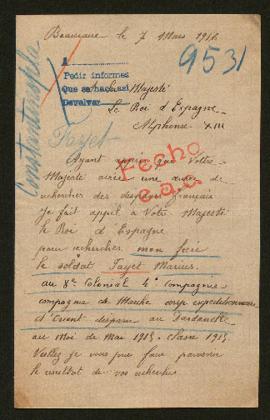 Beaucaire le 7 Mars 1916
9531
A
Pedir informes
Que se ha[...]
Devolver
Constantinople
Sa Majesté
Le Roi d'Espagne
Alphonse XIII
Fayet
Fecho
Ayant appris que Votre
Majesté aviez une œuvre de
recherches des disparus français
Je fait appel à Votre Majesté
le Roi d'Espagne
pour rechercher mon frère
le soldat Fayet Marius
au 8e Colonial 4e Compagnie
compagnie de Marche corp expéditionnaire
d'Orient disparu au Dardanelles
au Moi de Mai 1915 classe 1915
Veillez je vous prie faire parvenir
le résultat de vos recherches